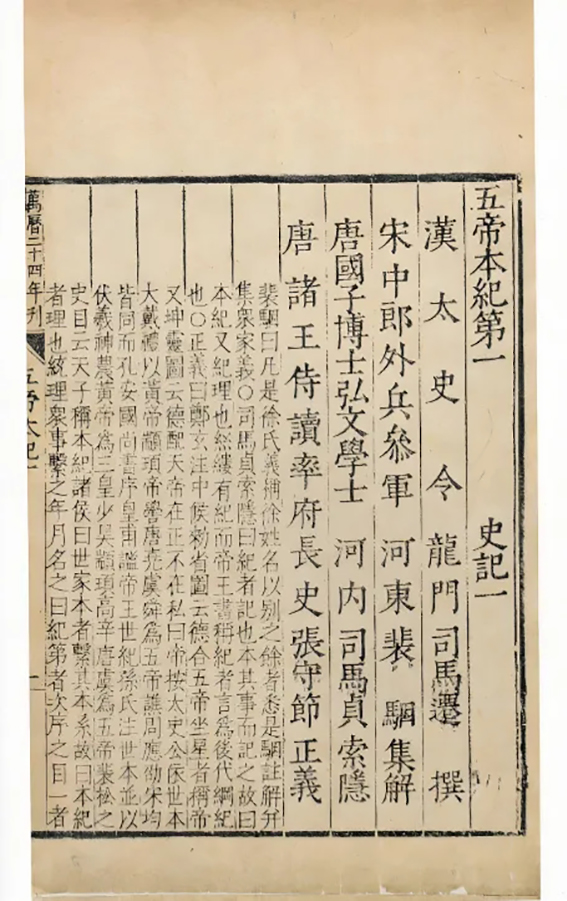 五帝本紀第一 史記一
漢太史令龍門司馬遷撰
宋中郎外兵叅軍河東裴駰集解
唐國子博士弘文學士河內司馬貞索隱
唐諸王侍讀率府長史張守節正義
裴駰曰凡是徐氏義稱徐姓名以別之餘者悉是駰註解幷
集衆家義○司馬貞索隱曰紀者記也本其事而記之故曰
本紀又紀理也絲縷有紀而帝王書稱紀者言爲後代綱紀
也○正義曰鄭玄注中候勑省圖云德合五帝坐星者稱帝
又坤靈圖云德配天帝在正不在私曰帝按太史公依世本
大戴禮以黃帝顓頊帝嚳唐堯虞舜爲五帝譙周應劭宋均
皆同而孔安國尚書序皇甫謐帝王世紀孫氏注世本並以
伏羲神農黃帝爲三皇少昊顓頊高辛唐虞爲五帝裴松之
史目云天子稱本紀諸侯曰世家本者繫其本系故曰本紀
者理也統理衆事繫之年月名之曰紀第者次序之目一者
萬曆二十四年刊 五帝本紀一 一